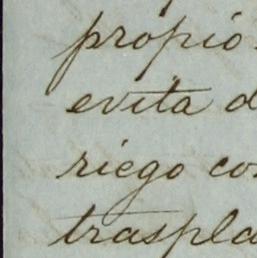 propio
evita d
riego co
traspla